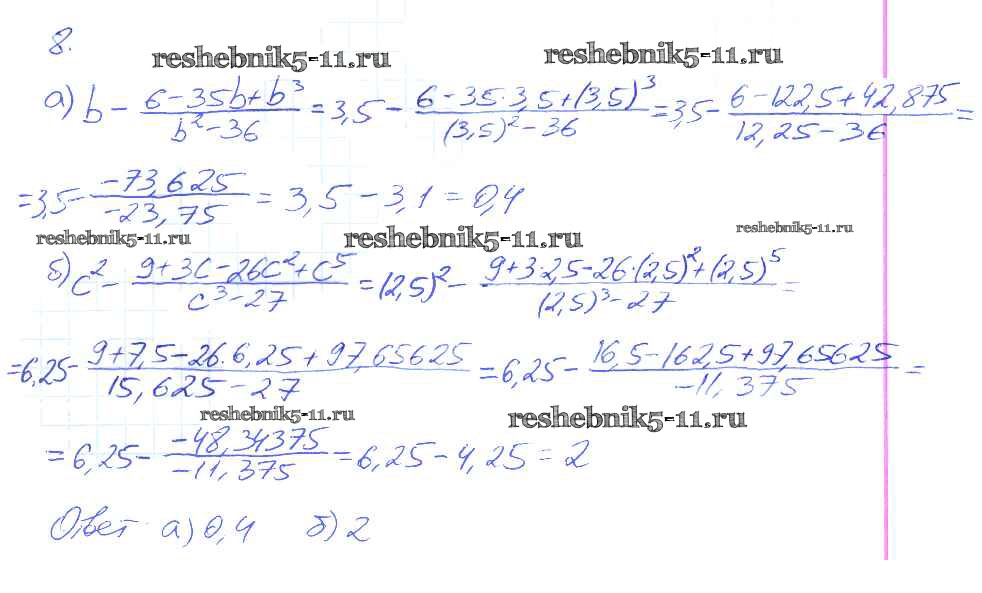 8.
reshebnik5-11.ru reshebnik5-11.ru
а) b - (6 - 35b + b³)/(b² - 36) = 3,5 - (6 - 35·3,5 + (3,5)³)/((3,5)² - 36) = 3,5 - (6 - 122,5 + 42,875)/(12,25 - 36) =
= 3,5 - (-73,625)/(-23,75) = 3,5 - 3,1 = 0,4
reshebnik5-11.ru reshebnik5-11.ru reshebnik5-11.ru
б) c² - (9 + 3c - 26c² + c⁵)/(c³ - 27) = (2,5)² - (9 + 3·2,5 - 26·(2,5)² + (2,5)⁵)/((2,5)³ - 27) =
= 6,25 - (9 + 7,5 - 26·6,25 + 97,65625)/(15,625 - 27) = 6,25 - (16,5 - 162,5 + 97,65625)/(-11,375) =
reshebnik5-11.ru reshebnik5-11.ru
= 6,25 - (-48,34375)/(-11,375) = 6,25 - 4,25 = 2
Ответ а) 0,4 б) 2